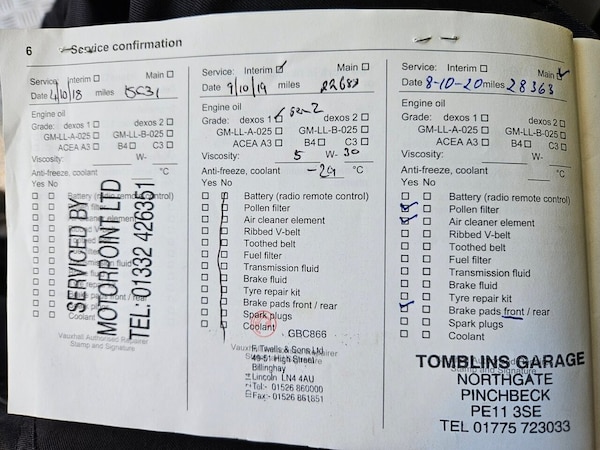 6 Service confirmation
Service: Interim ☐ Main ☐
Date 4/10/18 miles
Engine oil
Grade: dexos 1 ☐ dexos 2 ☐
GM-LL-A-025 ☐ GM-LL-B-025 ☐
ACEA A3 ☐ B4 ☐ C3 ☐
Viscosity: W-
Anti-freeze, coolant °C
Yes No
Battery (radio remote control)
Pollen filter
Air cleaner element
Ribbed V-belt
Brake pads front / rear
Coolant
Vauxhall Authorised Repairer
Stamp and Signature
SERVICED BY
MOTORPOINT LTD
TEL: 01332 426351
Service: Interim ☑ Main ☐
Date 9/10/19 miles 22682
Engine oil
Grade: dexos 1 ☑ gen 2
GM-LL-A-025 ☐ GM-LL-B-025 ☐
ACEA A3 ☐ B4 ☐ C3 ☐
Viscosity: 5 W- 30
Anti-freeze, coolant -29 °C
Yes No
Battery (radio remote control)
Pollen filter
Air cleaner element
Ribbed V-belt
Toothed belt
Fuel filter
Transmission fluid
Brake fluid
Tyre repair kit
Brake pads front / rear
Spark plugs
Coolant
GBC866
F. Twells & Sons Ltd
49-51 High Street
Billinghay
Lincoln LN4 4AU
Tel:- 01526 860000
Fax:- 01526 861851
Service: Interim ☐ Main ☑
Date 8-10-20 miles 28363
Engine oil
Grade: dexos 1 ☐ dexos 2 ☐
GM-LL-A-025 ☐ GM-LL-B-025 ☐
ACEA A3 ☐ B4 ☐ C3 ☐
Viscosity: W-
Anti-freeze, coolant °C
Yes No
Battery (radio remote control)
Pollen filter
Air cleaner element
Ribbed V-belt
Toothed belt
Fuel filter
Transmission fluid
Brake fluid
Tyre repair kit
Brake pads front / rear
Spark plugs
Coolant
TOMBLINS GARAGE
Stamp and Signature
NORTHGATE
PINCHBECK
PE11 3SE
TEL 01775 723033